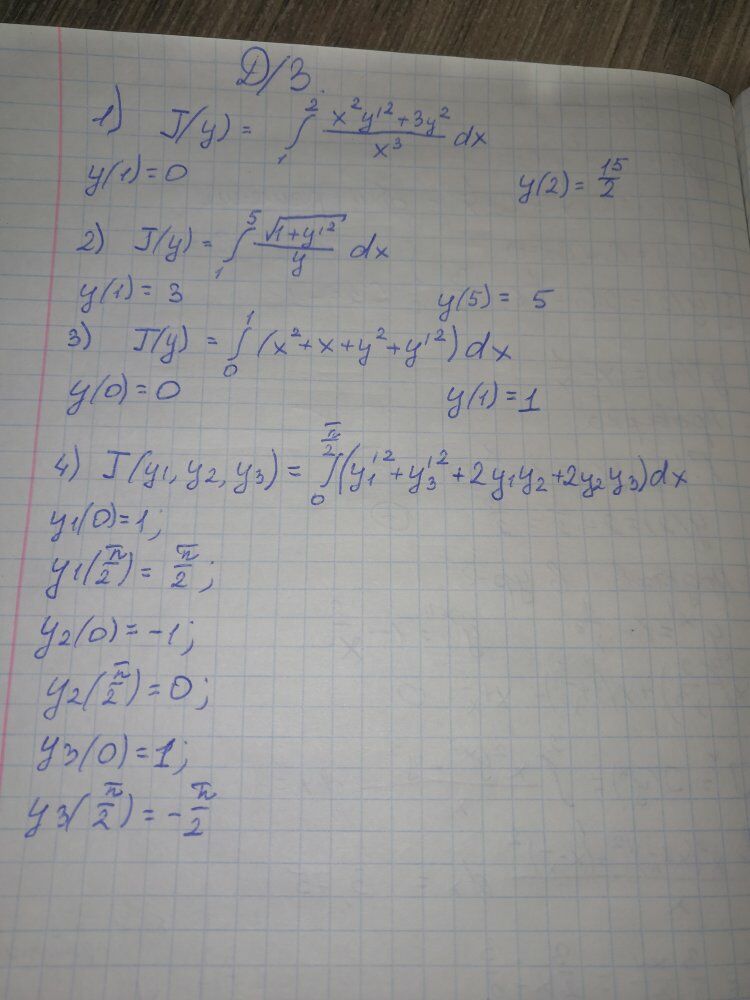 Д/З.
1) J(y) = ∫₁² (x²y'²+3y²)/x³ dx
y(1)=0 y(2)= 15/2
2) J(y) = ∫₁⁵ √(1+y'²)/y dx
y(1)= 3 y(5)= 5
3) J(y) = ∫₀¹ (x²+x+y²+y'²)dx
y(0)=0 y(1)=1
4) J(y₁, y₂, y₃) = ∫₀^(π/2) (y₁'²+y₃'²+2y₁y₂+2y₂y₃)dx
y₁(0)=1;
y₁(π/2)= π/2;
y₂(0)=-1;
y₂(π/2)=0;
y₃(0)=1;
y₃(π/2)=-π/2